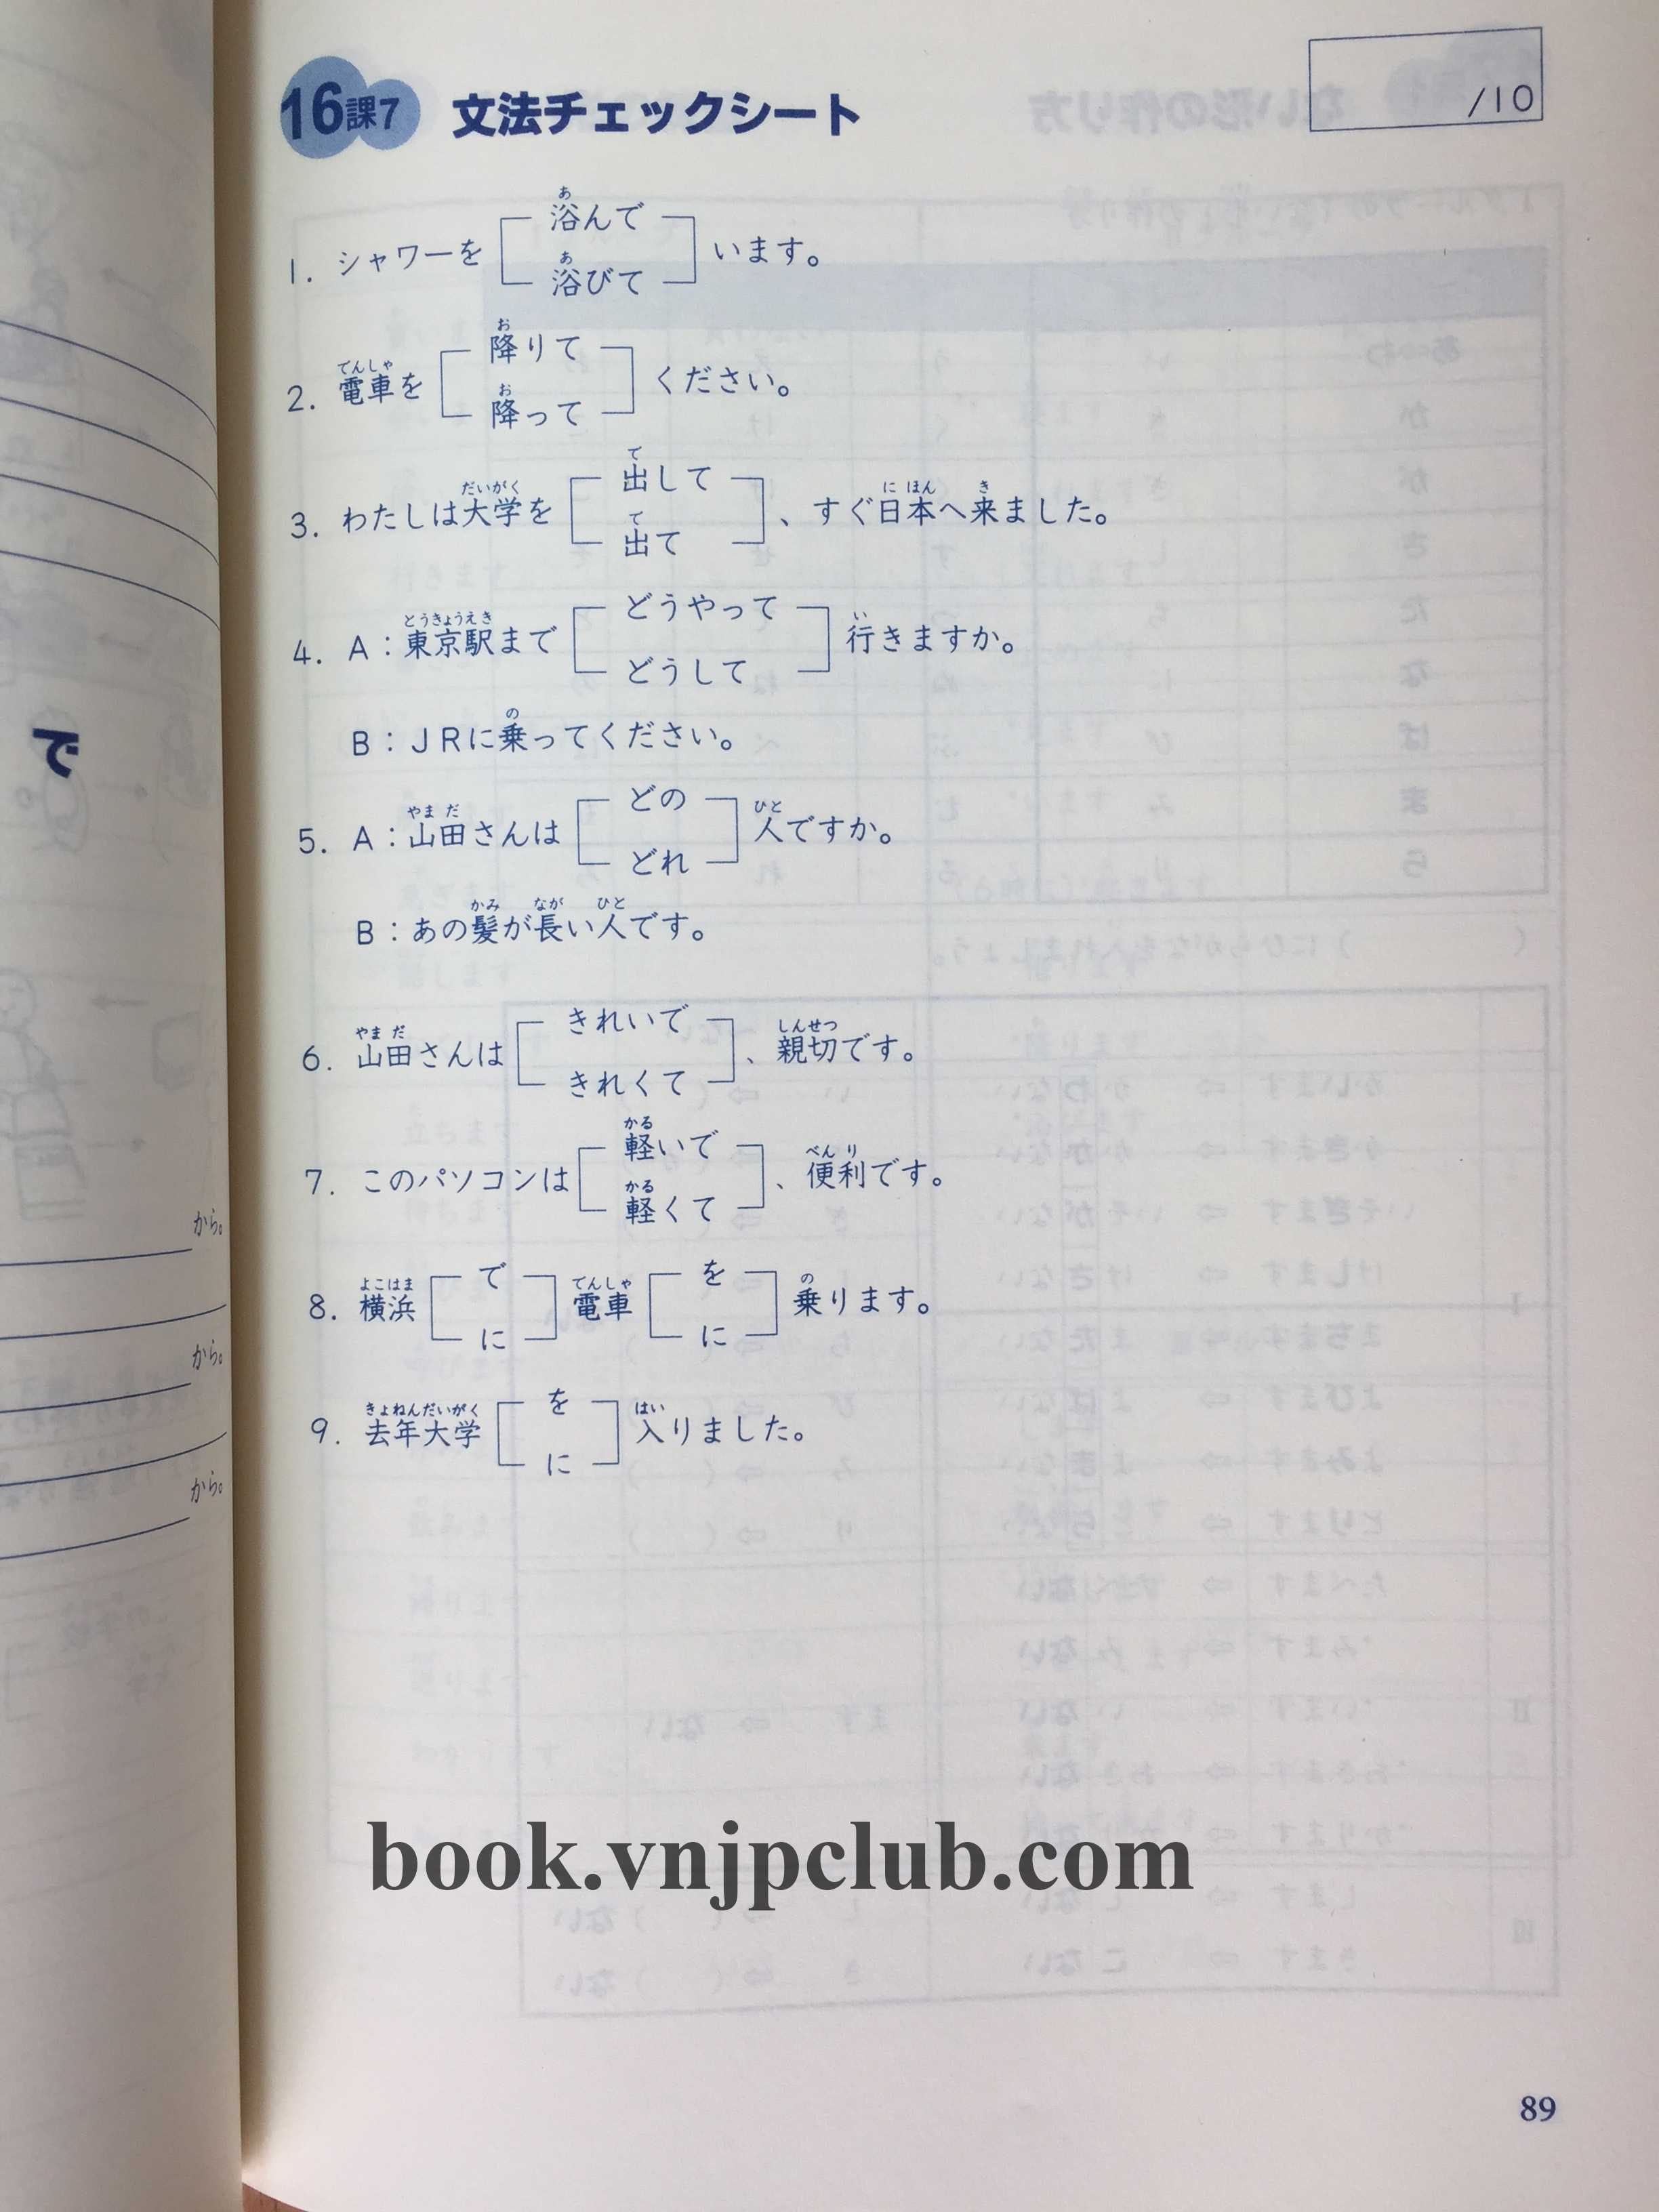 16課7 文法チェックシート
/10
1. シャワーを 浴んで 浴びて います。
2. 電車を 降りて 降って ください。
3. わたしは大学を 出して 出て 、すぐ日本へ来ました。
4. A：東京駅まで どうやって どうして 行きますか。
B：JRに乗ってください。
5. A：山田さんは どの どれ 人ですか。
B：あの髪が長い人です。
6. 山田さんは きれいで きれくて 、親切です。
7. このパソコンは 軽いで 軽くて 、便利です。
8. 横浜 で に 電車 を に 乗ります。
9. 去年大学 を に 入りました。
で
から。
から。
から。
book.vnjpclub.com
89